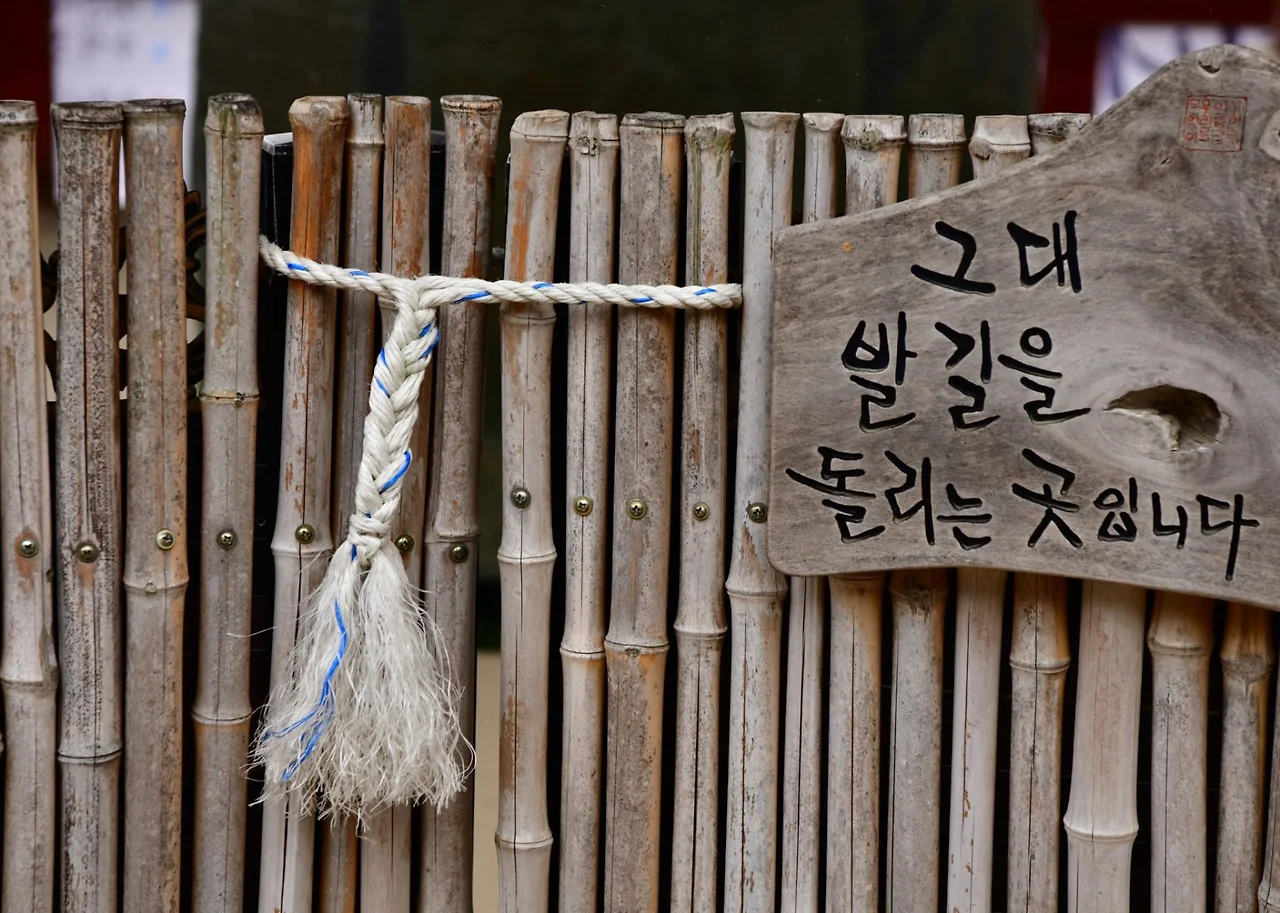 그대
발길을
돌리는 곳입니다